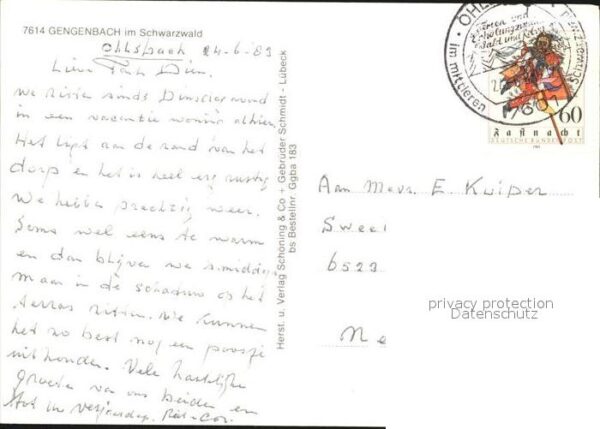 7614 GENGENBACH im Schwarzwald
Ohlsbach 24-6-83
Lieve Dien.
We zitten sinds Dinsdagavond
in een vacantie woning alhier.
Het ligt aan de rand van het
dorp en het is heel erg rustig
We hebben prachtig weer.
Soms wel eens te warm
en dan blijven we 's middags
maar in de schaduw op het
terras zitten. We kunnen
het zo best nog een poosje
uithouden. Vele hartelijke
groeten van ons beiden en
tot in
Herst. u. Verlag Schöning & Co + Gebrüder Schmidt - Lübeck
bs Bestellnr. Ggba 183
im mittleren
60
Fastnacht
DEUTSCHE BUNDESPOST
Aan Mevr. E Kuiper
Sweel
6523
Ne
privacy protection
Datenschutz